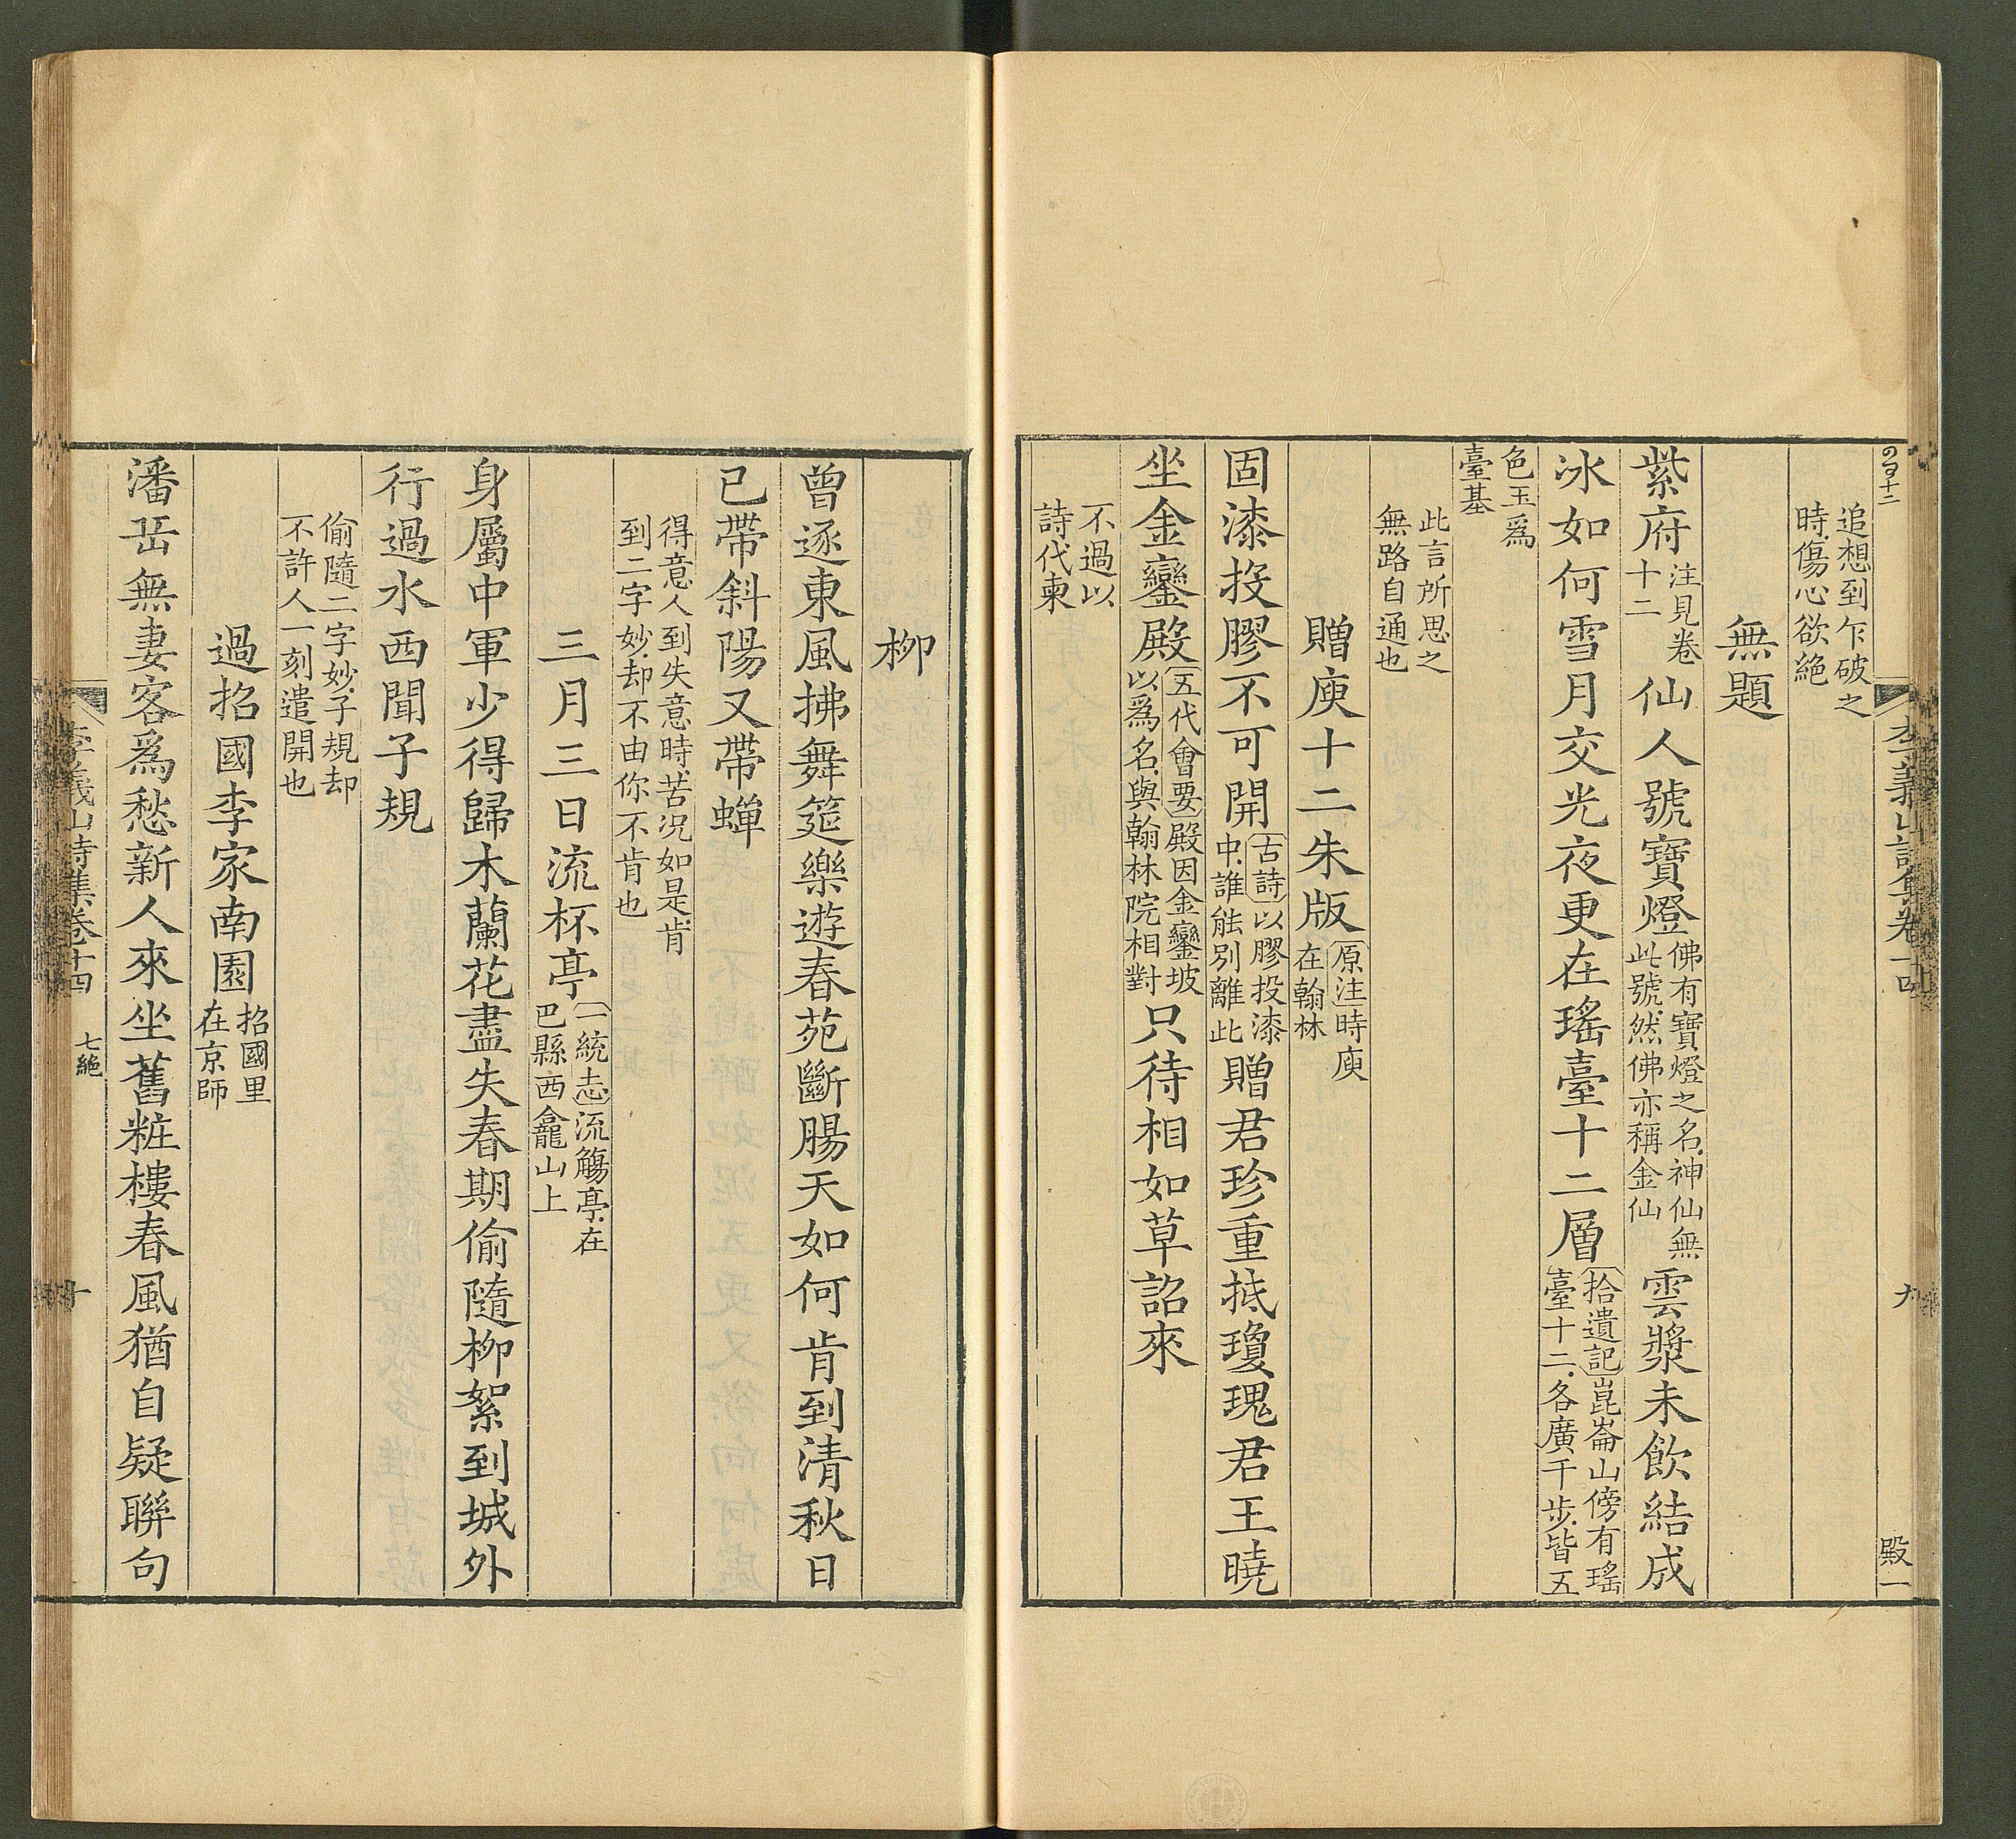 追想到乍破之
時傷心欲絕
無題
紫府注見卷
十二仙人號寶燈佛有寶燈之名神仙無
此號然佛亦稱金仙雲漿未飲結成
冰如何雪月交光夜更在瑤臺十二層拾遺記崑崙山傍有瑤
臺十二各廣千步皆五
色玉爲
臺基
此言所思之
無路自通也
贈庾十二朱版原注時庾
在翰林
固漆投膠不可開古詩以膠投漆
中誰能別離此贈君珍重抵瓊瑰君王曉
坐金鑾殿五代會要殿因金鑾坡
以爲名與翰林院相對只待相如草詔來
不過以
詩代柬
李義山詩集卷十四
九
殿一
柳
曾逐東風拂舞筵樂遊春苑斷腸天如何肯到清秋日
已帶斜陽又帶蟬
得意人到失意時苦况如是肯
到二字妙却不由你不肯也
三月三日流杯亭一統志流觴亭在
巴縣西龕山上
身屬中軍少得歸木蘭花盡失春期偷隨柳絮到城外
行過水西聞子規
偷隨二字妙子規却
不許人一刻遣開也
過招國李家南園招國里
在京師
潘岳無妻客爲愁新人來坐舊粧樓春風猶自疑聯句
李義山詩集卷十四
七絕
十